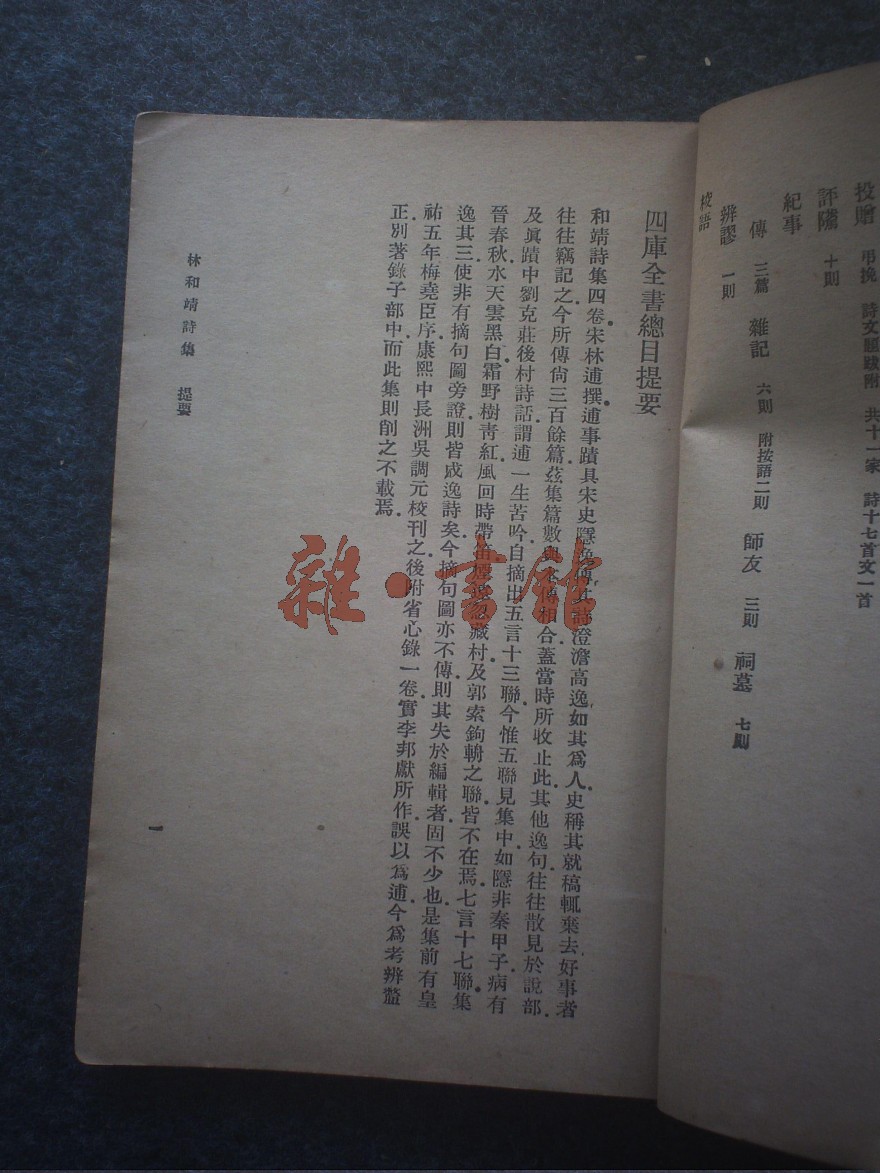 投贈 弔挽 詩文題跋附 共十一家 詩十七首文一首
評隲 十則
紀事
傳 三篇 雜記 六則 附按語二則 師友 三則 祠墓 七則
辨謬 一則
校語
四庫全書總目提要
和靖詩集四卷宋林逋撰逋事蹟具宋史隱逸傳其詩澄澹高逸如其爲人史稱其就稿輒棄去好事者
往往竊記之今所傳尙三百餘篇茲集篇數與本傳相合蓋當時所收止此其他逸句往往散見於說部
及眞蹟中劉克莊後村詩話謂逋一生苦吟自摘出五言十三聯今惟五聯見集中如隱非秦甲子病有
晉春秋水天雲黑白霜野樹靑紅風回時帶笛煙遠忽藏村及郭索鉤輈之聯皆不在焉七言十七聯集
逸其三使非有摘句圖旁證則皆成逸詩矣今摘句圖亦不傳則其失於編輯者固不少也是集前有皇
祐五年梅堯臣序康熙中長洲吳調元校刊之後附省心錄一卷實李邦獻所作誤以爲逋今爲考辨釐
正別著錄子部中而此集則削之不載焉
林和靖詩集 提要
一
雜·書館